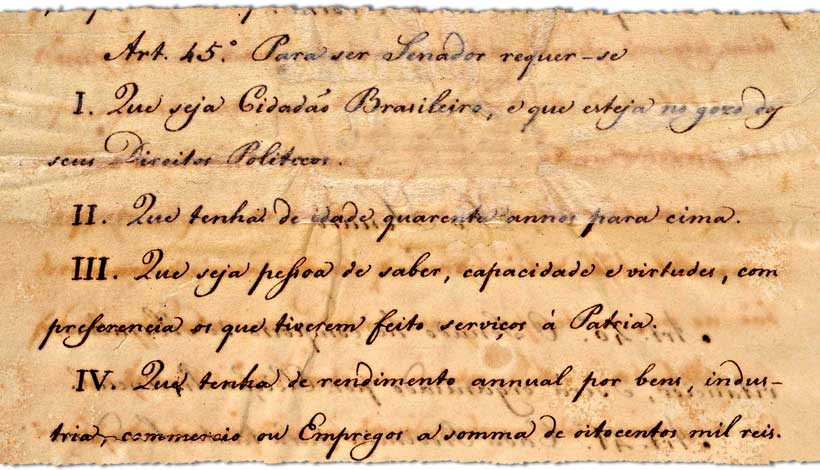 Art. 45.º Para ser Senador requer-se
I. Que seja Cidadão Brasileiro, e que esteja no gozo dos
seus Direitos Politicos.
II. Que tenha de idade quarenta annos para cima.
III. Que seja pessoa de saber, capacidade e virtudes, com
preferencia os que tiverem feito serviços á Patria.
IV. Que tenha de rendimento annual por bens, indus-
tria, commercio ou Empregos a somma de oitocentos mil reis.